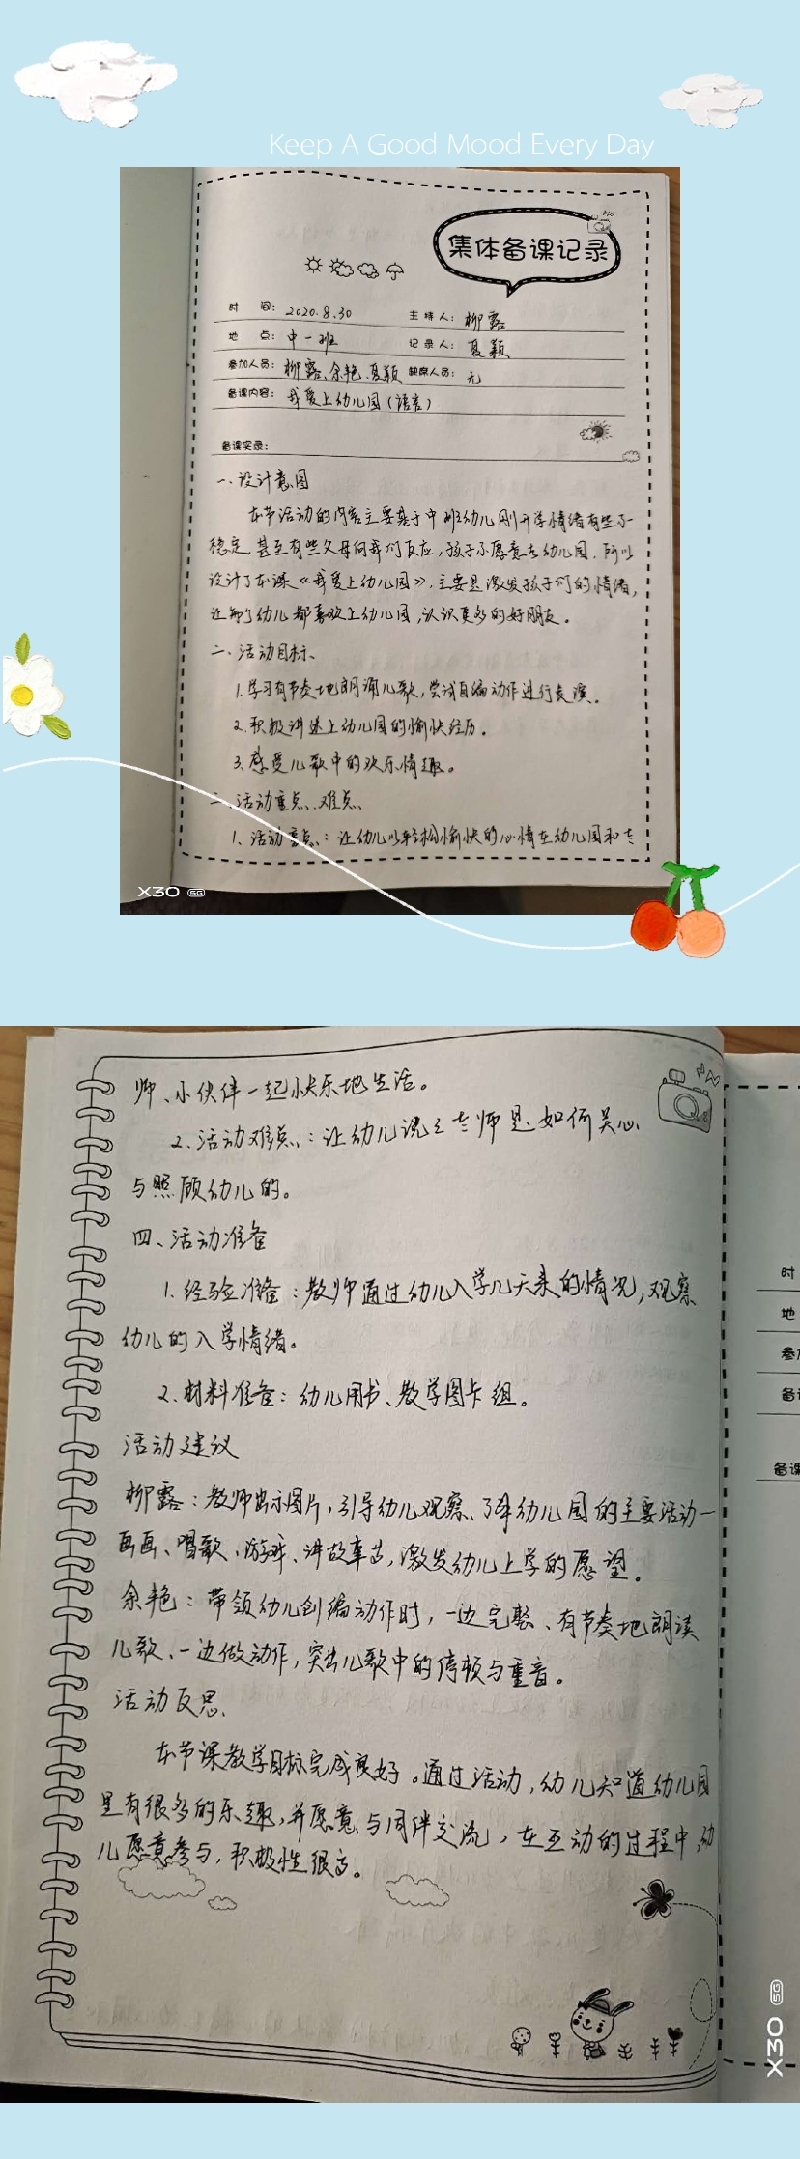 Keep A Good Mood Every Day
集体备课记录
时 间: 2020.8.30 主持人: 柳露
地 点: 中一班 记录人: 夏颖
参加人员: 柳露、余艳、夏颖 缺席人员: 无
备课内容: 我爱上幼儿园(语言)
备课实录:
一、设计意图
本节活动的内容主要基于中班幼儿刚开学情绪有些不
稳定,甚至有些父母向我们反应,孩子不愿意去幼儿园,所以
设计了本课《我爱上幼儿园》,主要是激发孩子们的情绪,
让每个幼儿都喜欢上幼儿园,认识更多的好朋友。
二、活动目标
1.学习有节奏地朗诵儿歌,尝试自编动作进行表演。
2.积极讲述上幼儿园的愉快经历。
3.感受儿歌中的欢乐情趣。
三、活动重点、难点
1.活动重点:让幼儿以轻松愉快的心情在幼儿园和老
X30 5G
师、小伙伴一起快乐地生活。
2.活动难点:让幼儿说说老师是如何关心
与照顾幼儿的。
四、活动准备
1.经验准备:教师通过幼儿入学几天来的情况,观察
幼儿的入学情绪。
2.材料准备:幼儿用书、教学图卡组。
活动建议
柳露:教师出示图片,引导幼儿观察、了解幼儿园的主要活动一
画画、唱歌、游戏、讲故事等,激发幼儿上学的愿望。
余艳:带领幼儿创编动作时,一边完整、有节奏地朗读
儿歌、一边做动作,突出儿歌中的停顿与重音。
活动反思
本节课教学目标完成良好。通过活动,幼儿知道幼儿园
里有很多的乐趣,并愿意与同伴交流,在互动的过程中,幼
儿愿意参与,积极性很高。
时
地
参加
备课
备课
X30 5G